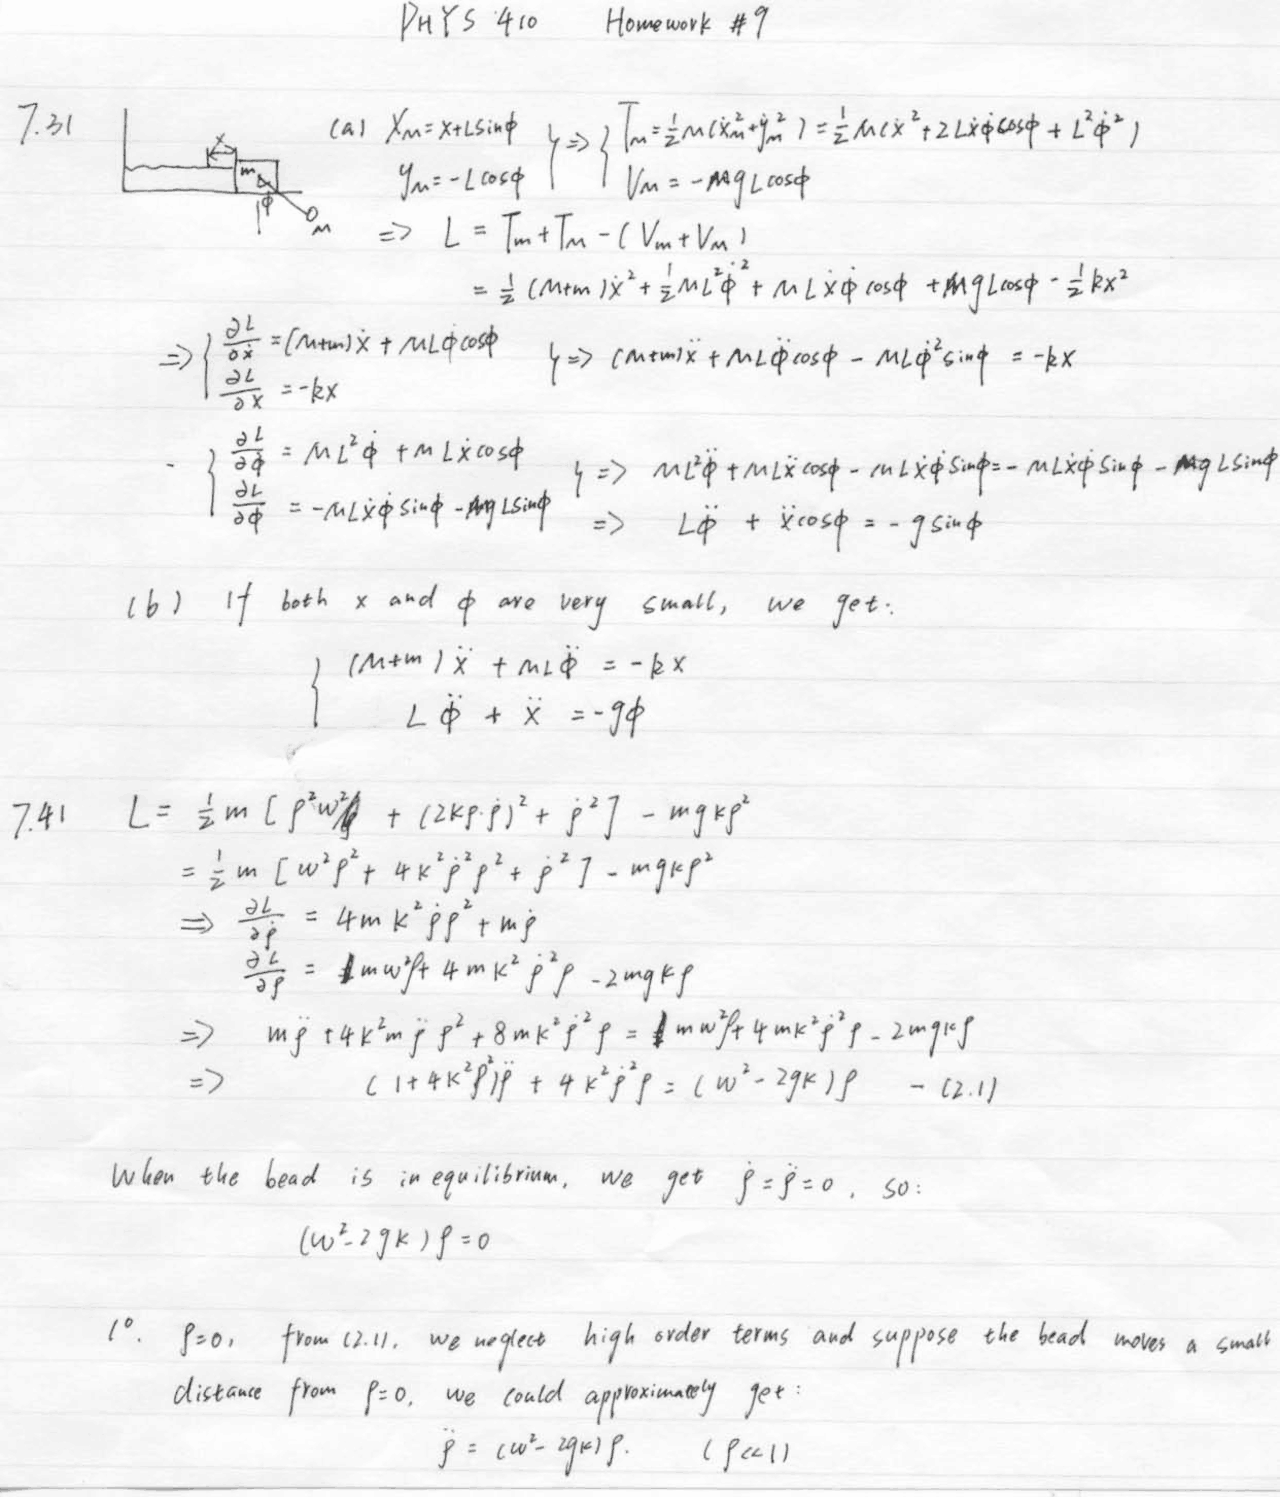 PHYS 410 Homework #9
7.31 (a) X_M = x + L sinϕ } => { T_M = ½M(ẋ_M² + ẏ_M²) = ½M(ẋ² + 2Lẋϕ̇cosϕ + L²ϕ̇²)
y_M = -L cosϕ V_M = -MgLcosϕ
x m ϕ M
=> L = T_m + T_M - (V_m + V_M)
= ½(M+m)ẋ² + ½ML²ϕ̇² + MLẋϕ̇cosϕ + MgLcosϕ - ½kx²
=> { ∂L/∂ẋ = (M+m)ẋ + MLϕ̇cosϕ } => (M+m)ẍ + MLϕ̈cosϕ - MLϕ̇²sinϕ = -kx
∂L/∂x = -kx
- { ∂L/∂ϕ̇ = ML²ϕ̇ + MLẋcosϕ } => ML²ϕ̈ + MLẍcosϕ - MLẋϕ̇sinϕ = -MLẋϕ̇sinϕ - MgLsinϕ
∂L/∂ϕ = -MLẋϕ̇sinϕ - MgLsinϕ => Lϕ̈ + ẍcosϕ = -gsinϕ
(b) If both x and ϕ are very small, we get:
{ (M+m)ẍ + MLϕ̈ = -kx
Lϕ̈ + ẍ = -gϕ
7.41 L = ½m[ρ²w² + (2kρ·ρ̇)² + ρ̇²] - mgkρ²
= ½m[w²ρ² + 4k²ρ̇²ρ² + ρ̇²] - mgkρ²
=> ∂L/∂ρ̇ = 4mk²ρ̇ρ² + mρ̇
∂L/∂ρ = mw²ρ + 4mk²ρ̇²ρ - 2mgkρ
=> mρ̈ + 4k²mρ̈ρ² + 8mk²ρ̇²ρ = mw²ρ + 4mk²ρ̇²ρ - 2mgkρ
=> (1+4k²ρ²)ρ̈ + 4k²ρ̇²ρ = (w² - 2gk)ρ - (2.1)
When the bead is in equilibrium, we get ρ̇ = ρ̈ = 0, so:
(w² - 2gk)ρ = 0
1°. ρ=0, from (2.1), we neglect high order terms and suppose the bead moves a small
distance from ρ=0, we could approximately get:
ρ̈ = (w² - 2gk)ρ. (ρ<<1)